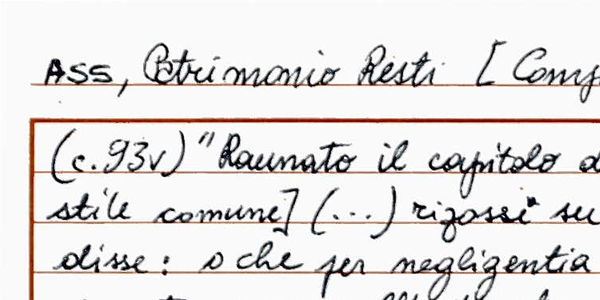 ASS, Patrimonio Resti [
(c.93v) "Raunato il capitolo
stile comune] (...) rizossi su
disse: o che per negligentia